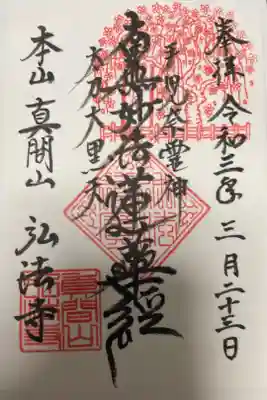 奉拝 令和三年 三月二十三日
手児奈霊神
南無妙法蓮華経
太刀大黒天
本山 真間山 弘法寺